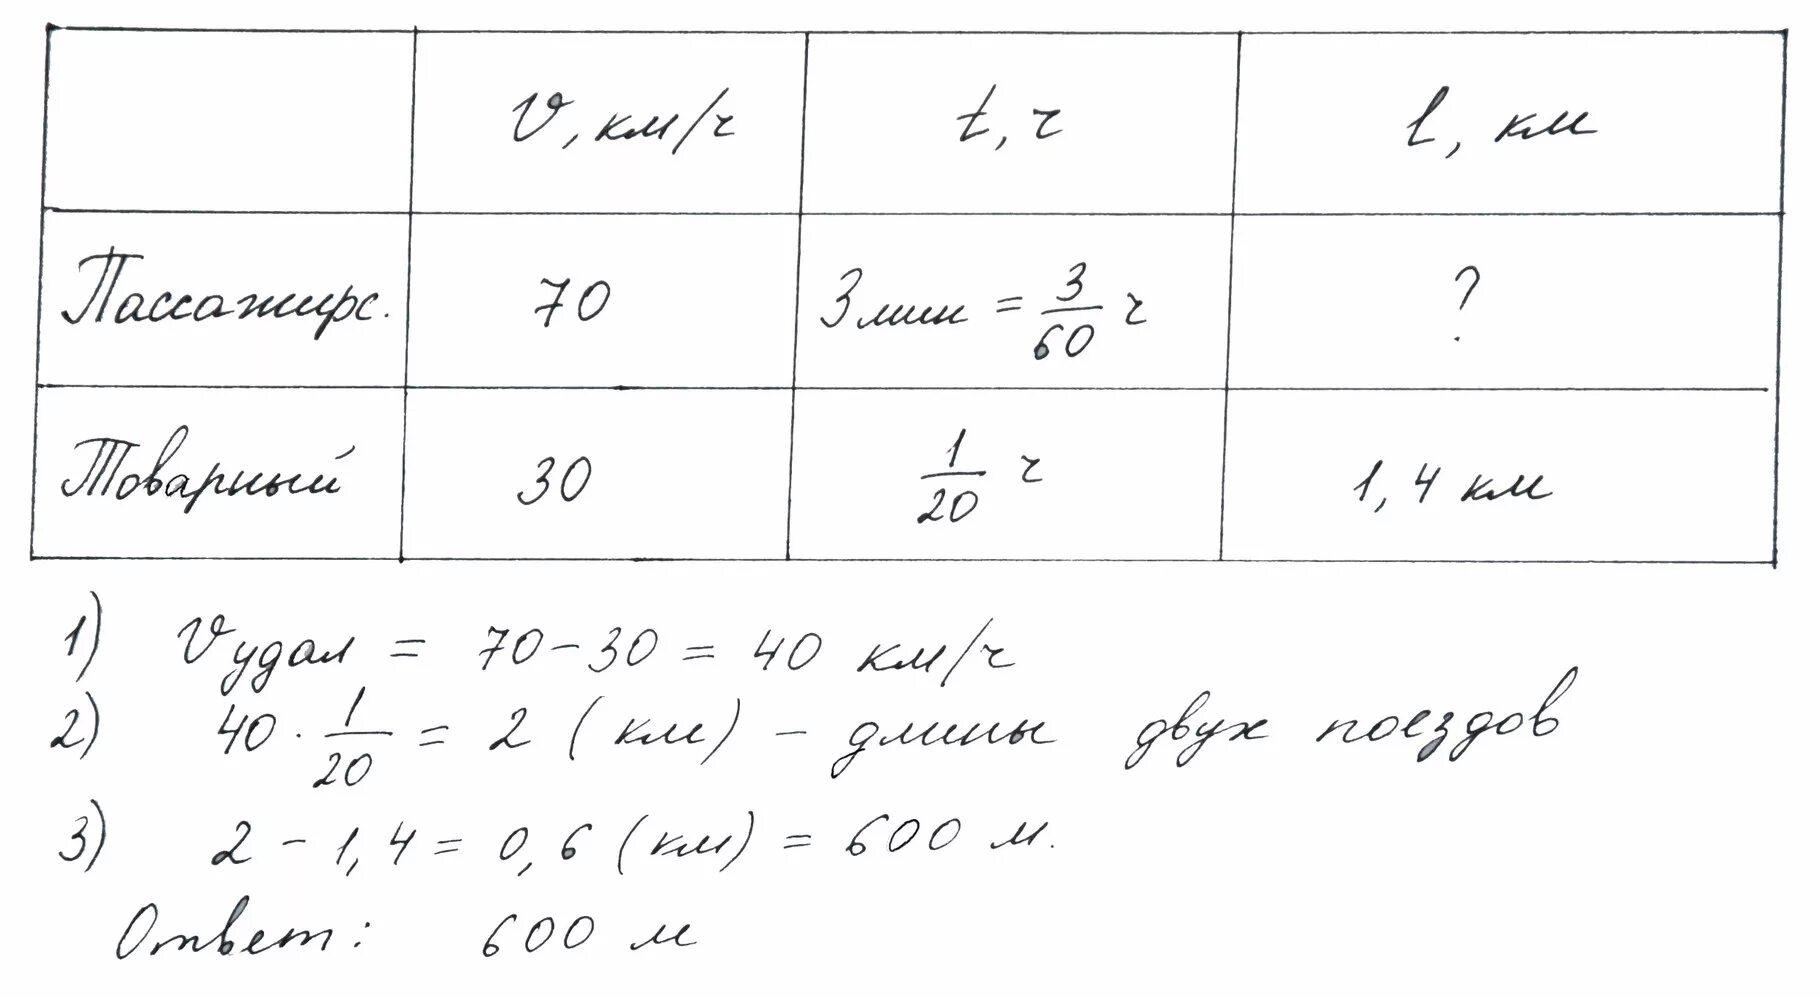 v, км/ч t, ч l, км
Пассажирс. 70 3 мин = 3/60 ч ?
Товарный 30 1/20 ч 1,4 км
1) Vудал = 70-30 = 40 км/ч
2) 40 · 1/20 = 2 (км) - длины двух поездов
3) 2 - 1,4 = 0,6 (км) = 600 м.
Ответ: 600 м